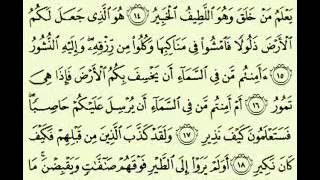 يَعْلَمُ مَنْ خَلَقَ وَهُوَ اللَّطِيفُ الْخَبِيرُ ﴿١٤﴾ هُوَ الَّذِي جَعَلَ لَكُمُ
الْأَرْضَ ذَلُولًا فَامْشُوا فِي مَنَاكِبِهَا وَكُلُوا مِن رِّزْقِهِ وَإِلَيْهِ النُّشُورُ
﴿١٥﴾ ءَأَمِنتُم مَّن فِي السَّمَاءِ أَن يَخْسِفَ بِكُمُ الْأَرْضَ فَإِذَا هِيَ
تَمُورُ ﴿١٦﴾ أَمْ أَمِنتُم مَّن فِي السَّمَاءِ أَن يُرْسِلَ عَلَيْكُمْ حَاصِبًا
فَسَتَعْلَمُونَ كَيْفَ نَذِيرِ ﴿١٧﴾ وَلَقَدْ كَذَّبَ الَّذِينَ مِن قَبْلِهِمْ فَكَيْفَ
كَانَ نَكِيرِ ﴿١٨﴾ أَوَلَمْ يَرَوْا إِلَى الطَّيْرِ فَوْقَهُمْ صَافَّاتٍ وَيَقْبِضْنَ مَا